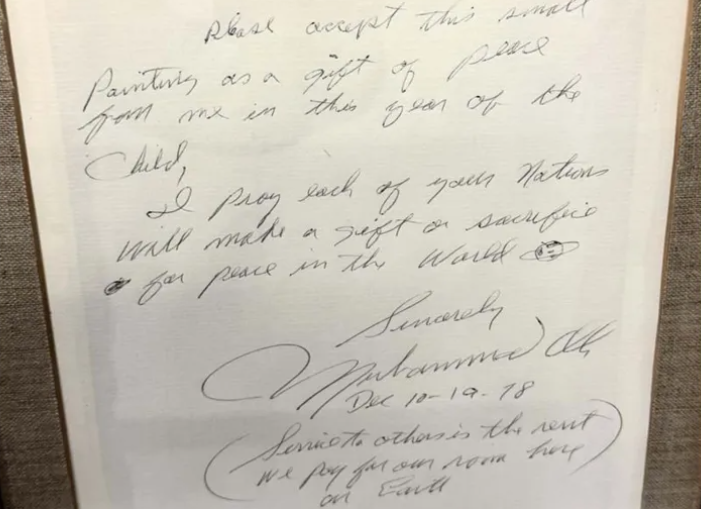 Please accept this small
Painting as a gift of peace
from me in this year of the
Child,
I pray each of your Nations
will make a gift or sacrifice
for peace in the World
Sincerely
Muhammad Ali
Dec 10-19-78
(Service to others is the rent
we pay for our room here
on Earth)